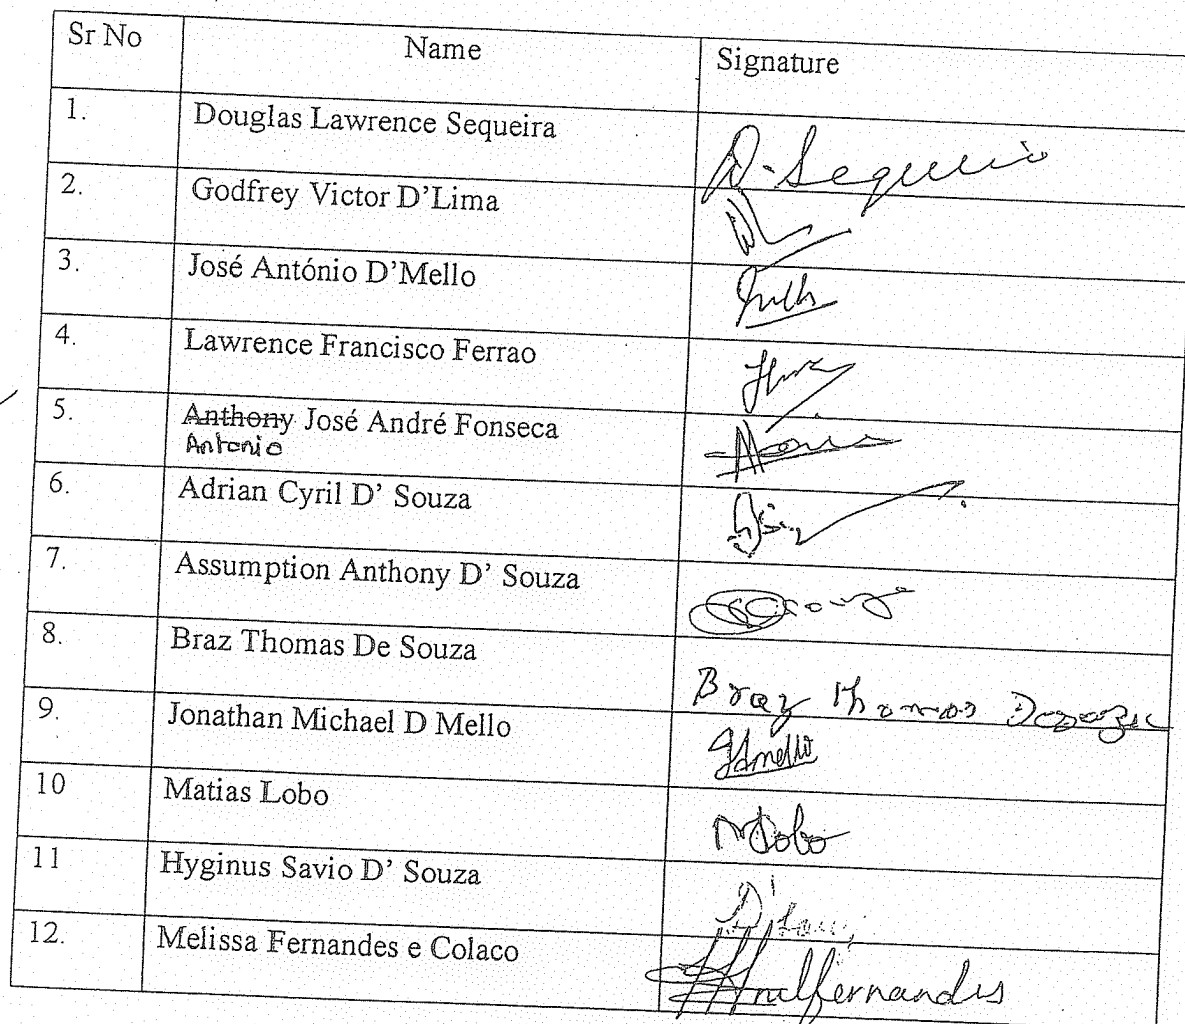 Sr No Name Signature
1. Douglas Lawrence Sequeira D. Sequeira
2. Godfrey Victor D’Lima
3. José António D’Mello
4. Lawrence Francisco Ferrao
5. Anthony José André Fonseca
Antonio
6. Adrian Cyril D’ Souza
7. Assumption Anthony D’ Souza
8. Braz Thomas De Souza Braz Thomas
9. Jonathan Michael D Mello
10 Matias Lobo MLobo
11 Hyginus Savio D’ Souza
12. Melissa Fernandes e Colaco